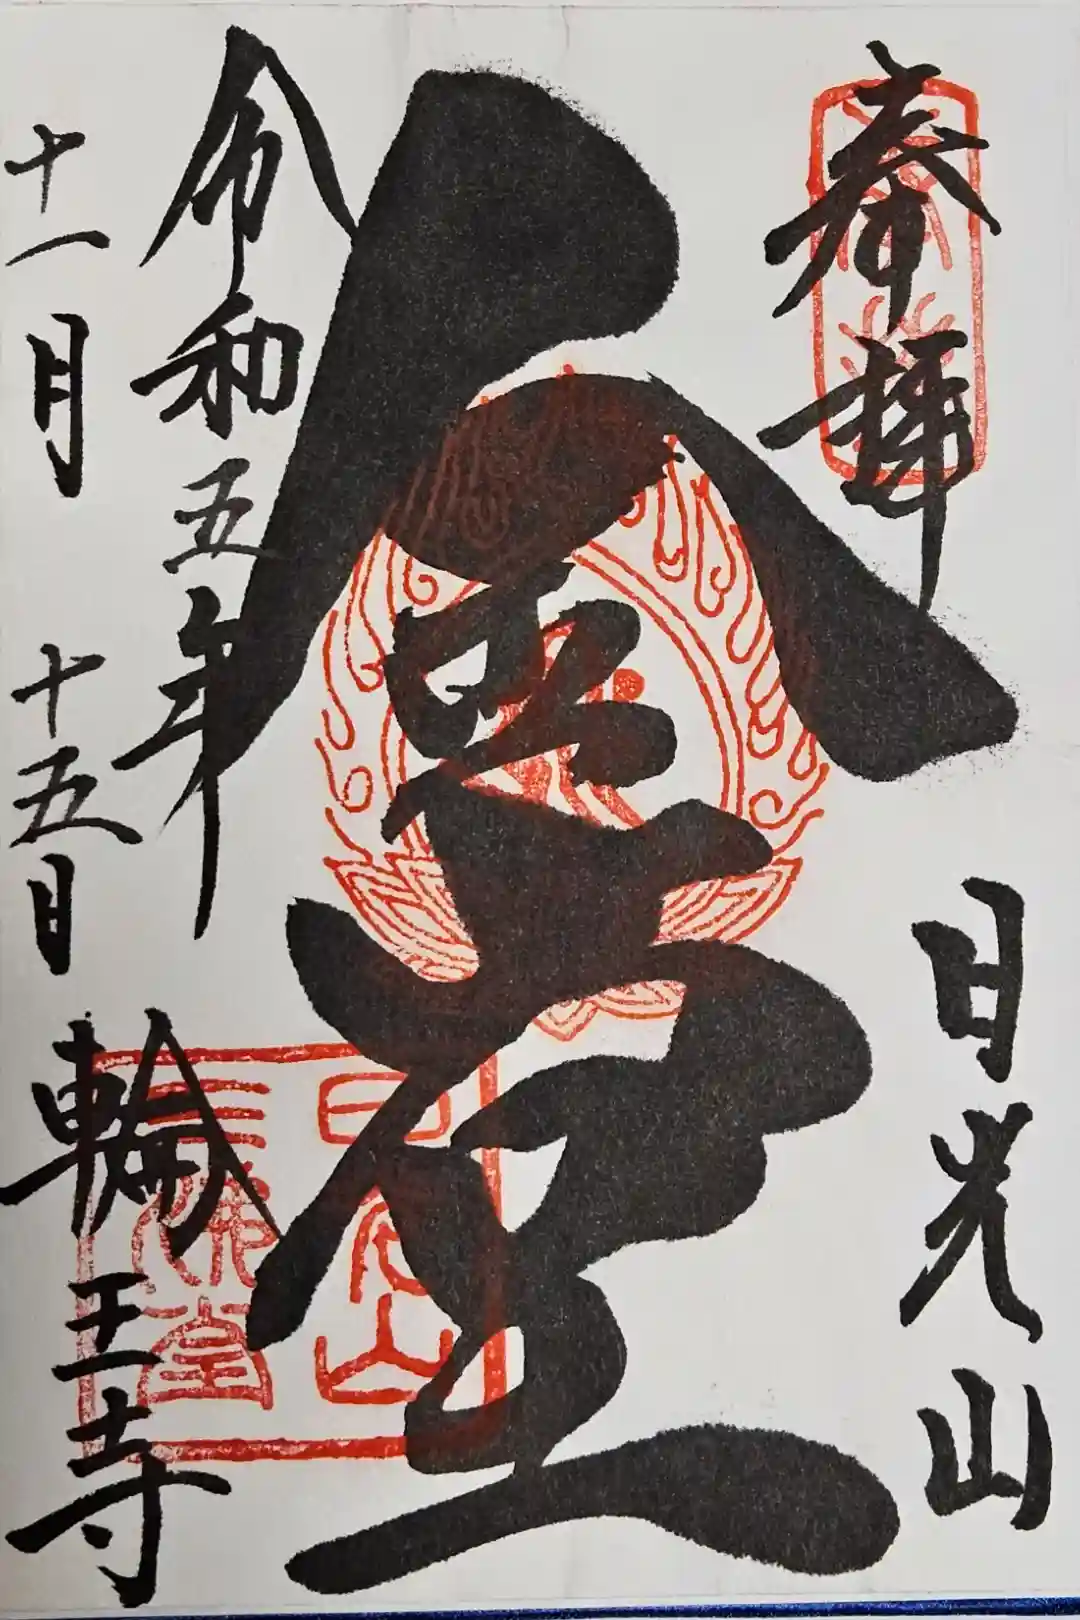 奉拝
日光山
金堂
令和五年
十一月十五日
輪王寺
日光山
三佛堂